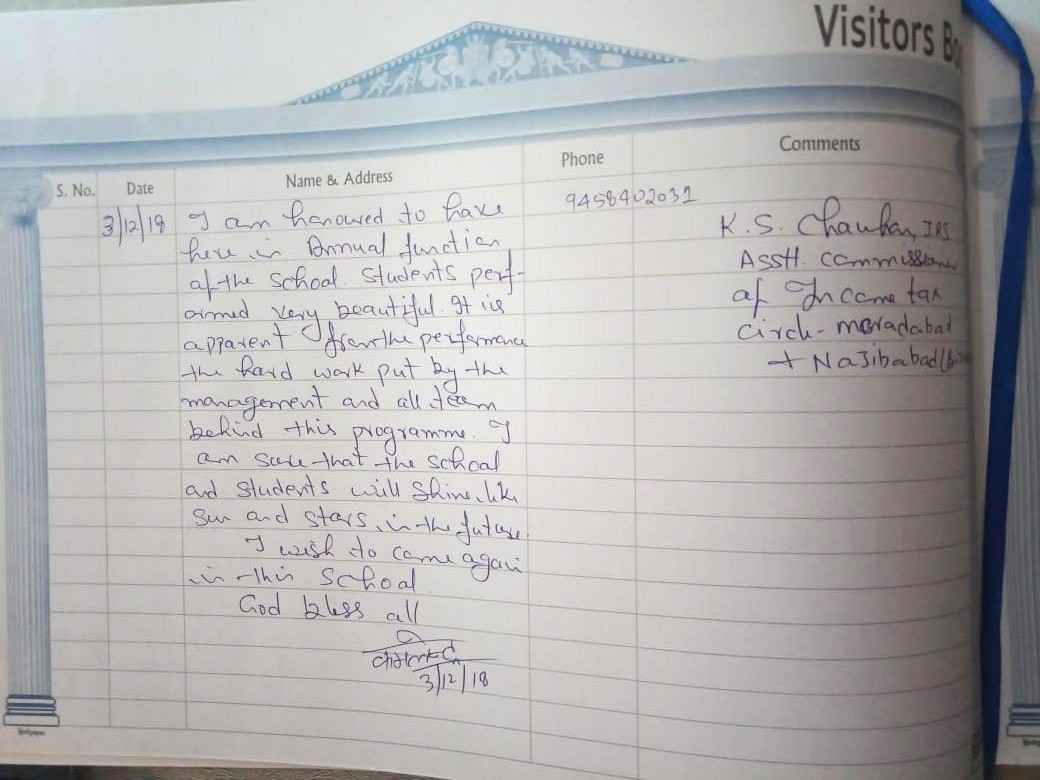 Visitors
S. No.
Date
Name & Address
Phone
Comments
3/12/18
I am honoured to have
here in Annual function
of the school. Students perf-
ormed very beautiful. It is
apparent from the performance
the hard work put by the
management and all team
behind this programme. I
am sure that the school
and students will shine like
sun and stars in the future.
I wish to come again
in this school
God bless all
3/12/18
9458402031
K.S. Chauhan, IRS
Asstt. Commissioner
of Income tax
Circle - moradabad
+ Najibabad